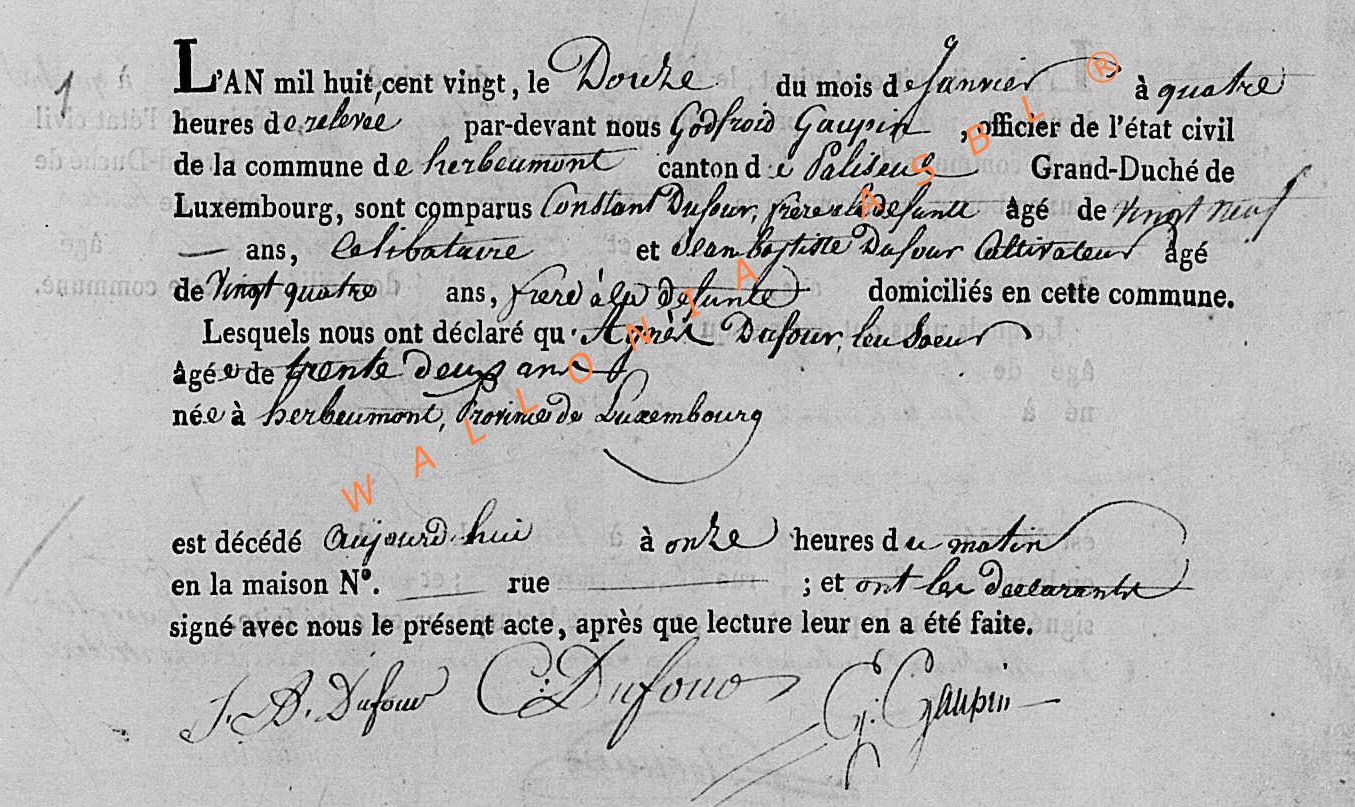 1
L'AN mil huit cent vingt, le Douze du mois de Janvier à quatre
heures de relevée par-devant nous Godfroid Gaupin, officier de l'état civil
de la commune de herbeumont canton de Paliseul Grand-Duché de
Luxembourg, sont comparus Constant Dufour, frère à la defunte âgé de vingt neuf
— ans, Celibataire et Jean baptiste Dufour Cultivateur âgé
de Vingt quatre ans, frere à la defunte domiciliés en cette commune.
Lesquels nous ont déclaré qu'Agnès Dufour, leu Soeur
âgée de trente deux ans
née à herbeumont, Province de Luxembourg
est décédé aujourd'hui à onze heures du matin
en la maison N°. — rue — ; et ont les declarants
signé avec nous le présent acte, après que lecture leur en a été faite.
J. B. Dufour C: Dufour G: Gaupin
WALLONIA ASBL ®